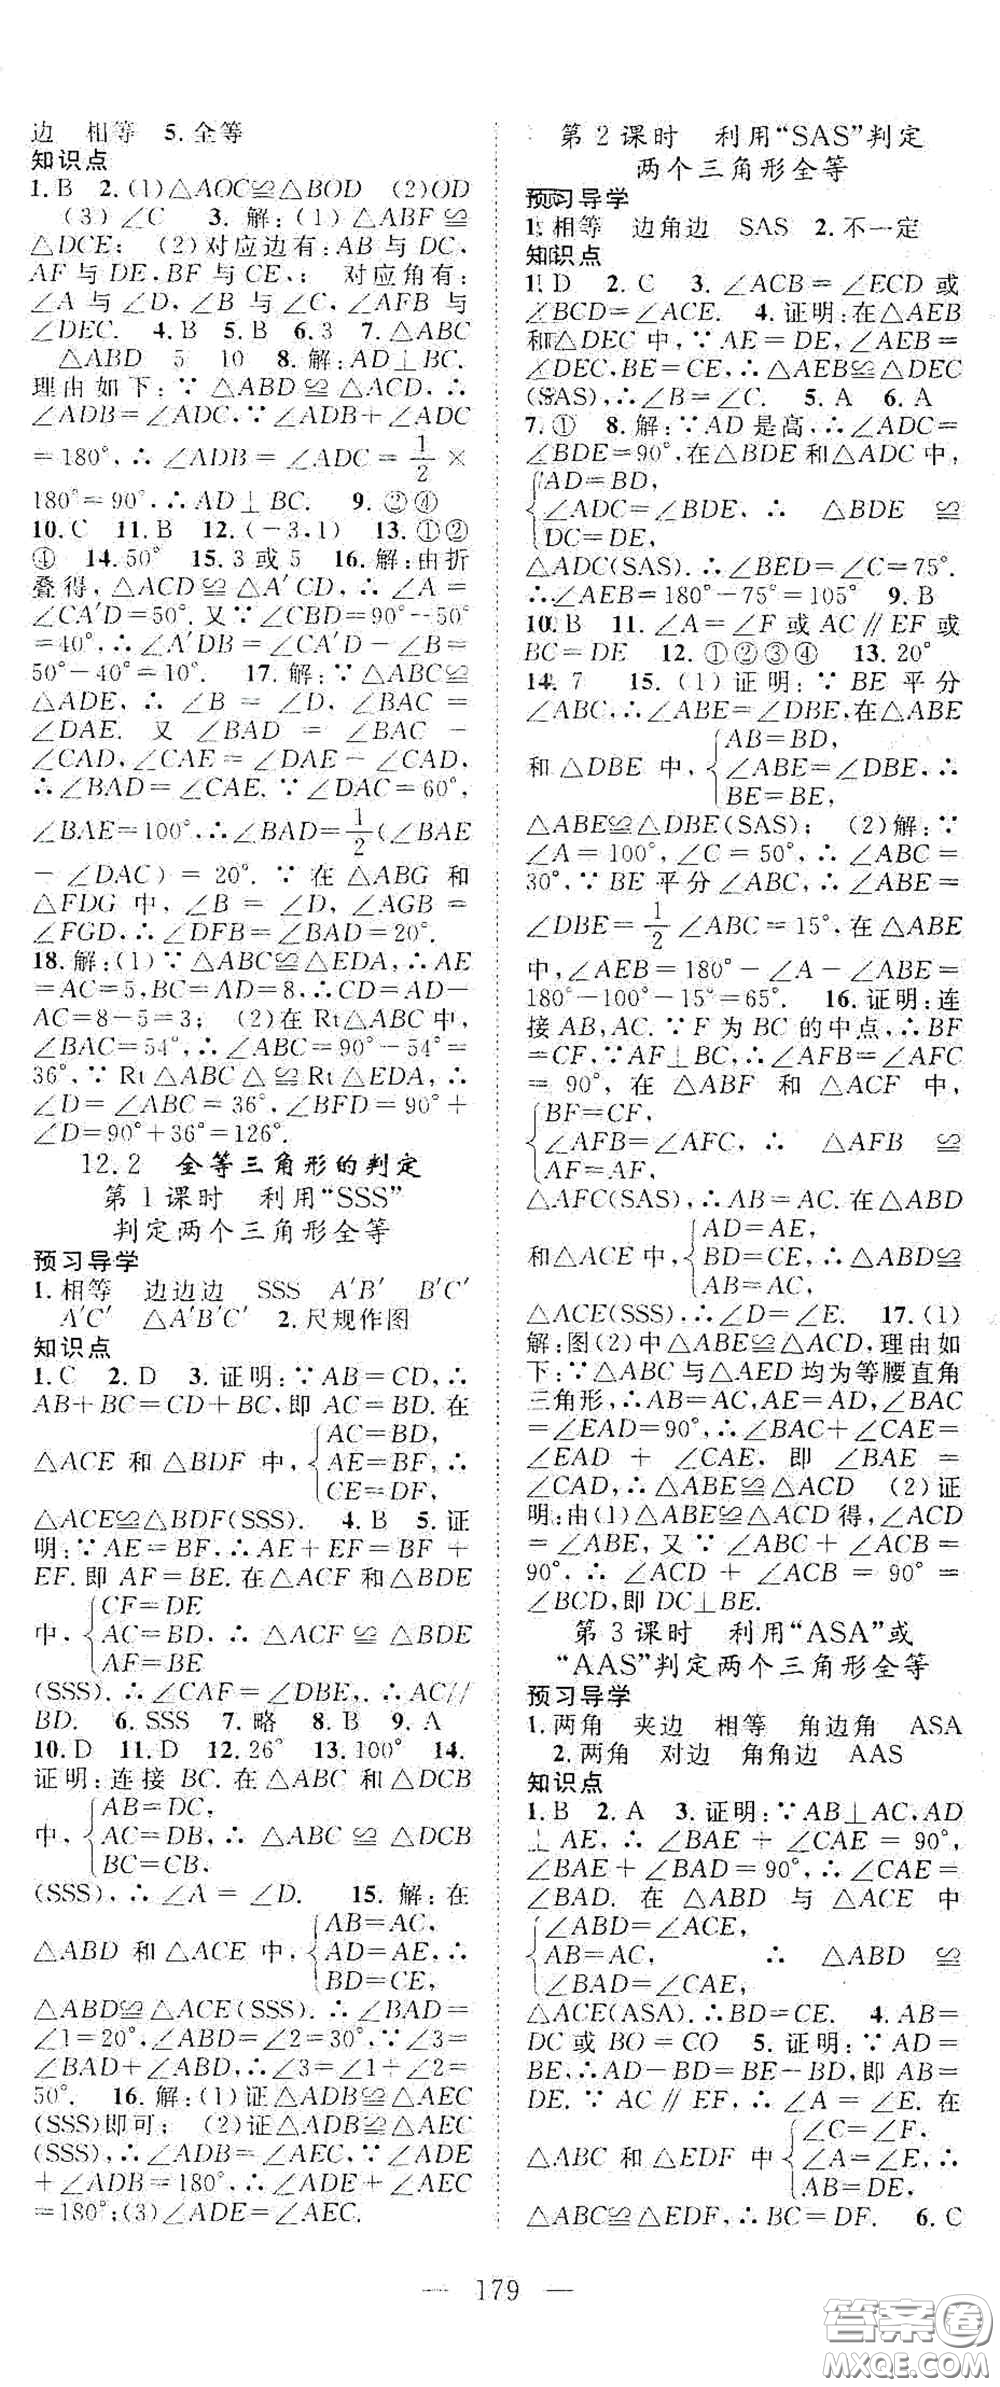 边 相等 5.全等
知识点
1.B 2.(1)△AOC≌△BOD (2)OD
(3)∠C 3.解:(1)△ABF≌
△DCE; (2)对应边有:AB与DC,
AF与DE,BF与CE,; 对应角有:
∠A与∠D,∠B与∠C,∠AFB与
∠DEC. 4.B 5.B 6.3 7.△ABC
△ABD 5 10 8.解:AD⊥BC.
理由如下:∵△ABD≌△ACD,∴
∠ADB=∠ADC,∵∠ADB+∠ADC
=180°,∴∠ADB=∠ADC=1/2×
180°=90°,∴AD⊥BC. 9.②④
10.C 11.B 12.(-3,1) 13.①②
④ 14.50° 15.3或5 16.解:由折
叠得,△ACD≌△A′CD,∴∠A=
∠CA′D=50°.又∵∠CBD=90°-50°
=40°,∴∠A′DB=∠CA′D-∠B=
50°-40°=10°. 17.解:∵△ABC≌
△ADE,∴∠B=∠D,∠BAC=
∠DAE.又∠BAD=∠BAC-
∠CAD,∠CAE=∠DAE-∠CAD,
∴∠BAD=∠CAE.∵∠DAC=60°,
∠BAE=100°,∴∠BAD=1/2(∠BAE
-∠DAC)=20°.∵在△ABG和
△FDG中,∠B=∠D,∠AGB=
∠FGD,∴∠DFB=∠BAD=20°.
18.解:(1)∵△ABC≌△EDA,∴AE
=AC=5,BC=AD=8,∴CD=AD-
AC=8-5=3; (2)在Rt△ABC中,
∠BAC=54°,∴∠ABC=90°-54°=
36°,∵Rt△ABC△≌Rt△EDA,∴
∠D=∠ABC=36°,∠BFD=90°+
∠D=90°+36°=126°.
12.2 全等三角形的判定
第1课时 利用“SSS”
判定两个三角形全等
预习导学
1.相等 边边边 SSS A′B′ B′C′
A′C′ △A′B′C′ 2.尺规作图
知识点
1.C 2.D 3.证明:∵AB=CD,∴
AB+BC=CD+BC,即AC=BD.在
AC=BD,
△ACE和△BDF中,{AE=BF,∴
CE=DF,
△ACE≌△BDF(SSS). 4.B 5.证
明:∵AE=BF,∴AE+EF=BF+
EF.即AF=BE.在△ACF和△BDE
CF=DE
中,{AC=BD,∴△ACF≌△BDE
AF=BE
(SSS).∴∠CAF=∠DBE,.∴AC//
BD. 6.SSS 7.略 8.B 9.A
10.D 11.D 12.26° 13.100° 14.
证明:连接BC.在△ABC和△DCB
AB=DC,
中,{AC=DB,∴△ABC≌△DCB
BC=CB,
(SSS),∴∠A=∠D. 15.解:在
AB=AC,
△ABD和△ACE中,{AD=AE,∴
BD=CE,
△ABD≌△ACE(SSS).∴∠BAD=
∠1=20°,∠ABD=∠2=30°,∵∠3=
∠BAD+∠ABD,∴∠3=∠1+∠2=
50°. 16.解:(1)证△ADB≌△AEC
(SSS)即可; (2)证△ADB≌△AEC
(SSS),∴∠ADB=∠AEC,∵∠ADE
+∠ADB=180°,∴∠ADE+∠AEC
=180°;(3)∠ADE=∠AEC.
第2课时 利用“SAS”判定
两个三角形全等
预习导学
1.相等 边角边 SAS 2.不一定
知识点
1.D 2.C 3.∠ACB=∠ECD或
∠BCD=∠ACE. 4.证明:在△AEB
和△DEC中,∵AE=DE,∠AEB=
∠DEC,BE=CE,∴△AEB≌△DEC
(SAS),∴∠B=∠C. 5.A 6.A
7.① 8.解:∵AD是高,∴∠ADC=
∠BDE=90°,在△BDE和△ADC中,
AD=BD,
{∠ADC=∠BDE,∴ △BDE ≌
DC=DE,
△ADC(SAS).∴∠BED=∠C=75°.
∴∠AEB=180°-75°=105° 9.B
10.B 11.∠A=∠F或AC∥EF或
BC=DE 12.①②③④ 13.20°
14.7 15.(1)证明:∵BE平分
∠ABC,∴∠ABE=∠DBE,在△ABE
AB=BD,
和△DBE中,{∠ABE=∠DBE,∴
BE=BE,
△ABE≌△DBE(SAS); (2)解:∵
∠A=100°,∠C=50°,∴∠ABC=
30°,∵BE平分∠ABC,∴∠ABE=
∠DBE=1/2∠ABC=15°,在△ABE
中,∠AEB=180°-∠A-∠ABE=
180°-100°-15°=65°. 16.证明:连
接AB,AC.∵F为BC的中点,∴BF
=CF,∵AF⊥BC,∴∠AFB=∠AFC
=90°,在△ABF和△ACF中,
BF=CF,
{∠AFB=∠AFC,∴ △AFB ≌
AF=AF,
△AFC(SAS),∴AB=AC.在△ABD
AD=AE,
和△ACE中,{BD=CE,∴△ABD≌
AB=AC,
△ACE(SSS),∴∠D=∠E. 17.(1)
解:图(2)中△ABE≌△ACD,理由如
下:∵△ABC与△AED均为等腰直角
三角形,∴AB=AC,AE=AD,∠BAC
=∠EAD=90°,∴∠BAC+∠CAE=
∠EAD+∠CAE,即∠BAE=
∠CAD,∴△ABE≌△ACD (2)证
明:由(1)△ABE≌△ACD得,∠ACD
=∠ABE,又∵∠ABC+∠ACB=
90°,∴∠ACD+∠ACB=90°=
∠BCD,即DC⊥BE.
第3课时 利用“ASA”或
“AAS”判定两个三角形全等
预习导学
1.两角 夹边 相等 角边角 ASA
2.两角 对边 角角边 AAS
知识点
1.B 2.A 3.证明:∵AB⊥AC,AD
⊥AE,∴∠BAE+∠CAE=90°,
∠BAE+∠BAD=90°,∴∠CAE=
∠BAD.在△ABD与△ACE中
∠ABD=∠ACE,
{AB=AC, ∴ △ABD ≌
∠BAD=∠CAE,
△ACE(ASA).∴BD=CE. 4.AB=
DC或BO=CO 5.证明:∵AD=
BE,∴AD-BD=BE-BD,即AB=
DE.∵AC∥EF,∴∠A=∠E.在
∠C=∠F,
△ABC和△EDF中{∠A=∠E,∴
AB=DE,
△ABC≌△EDF,∴BC=DF. 6.C
— 179 —
答案圈
MXQE.COM